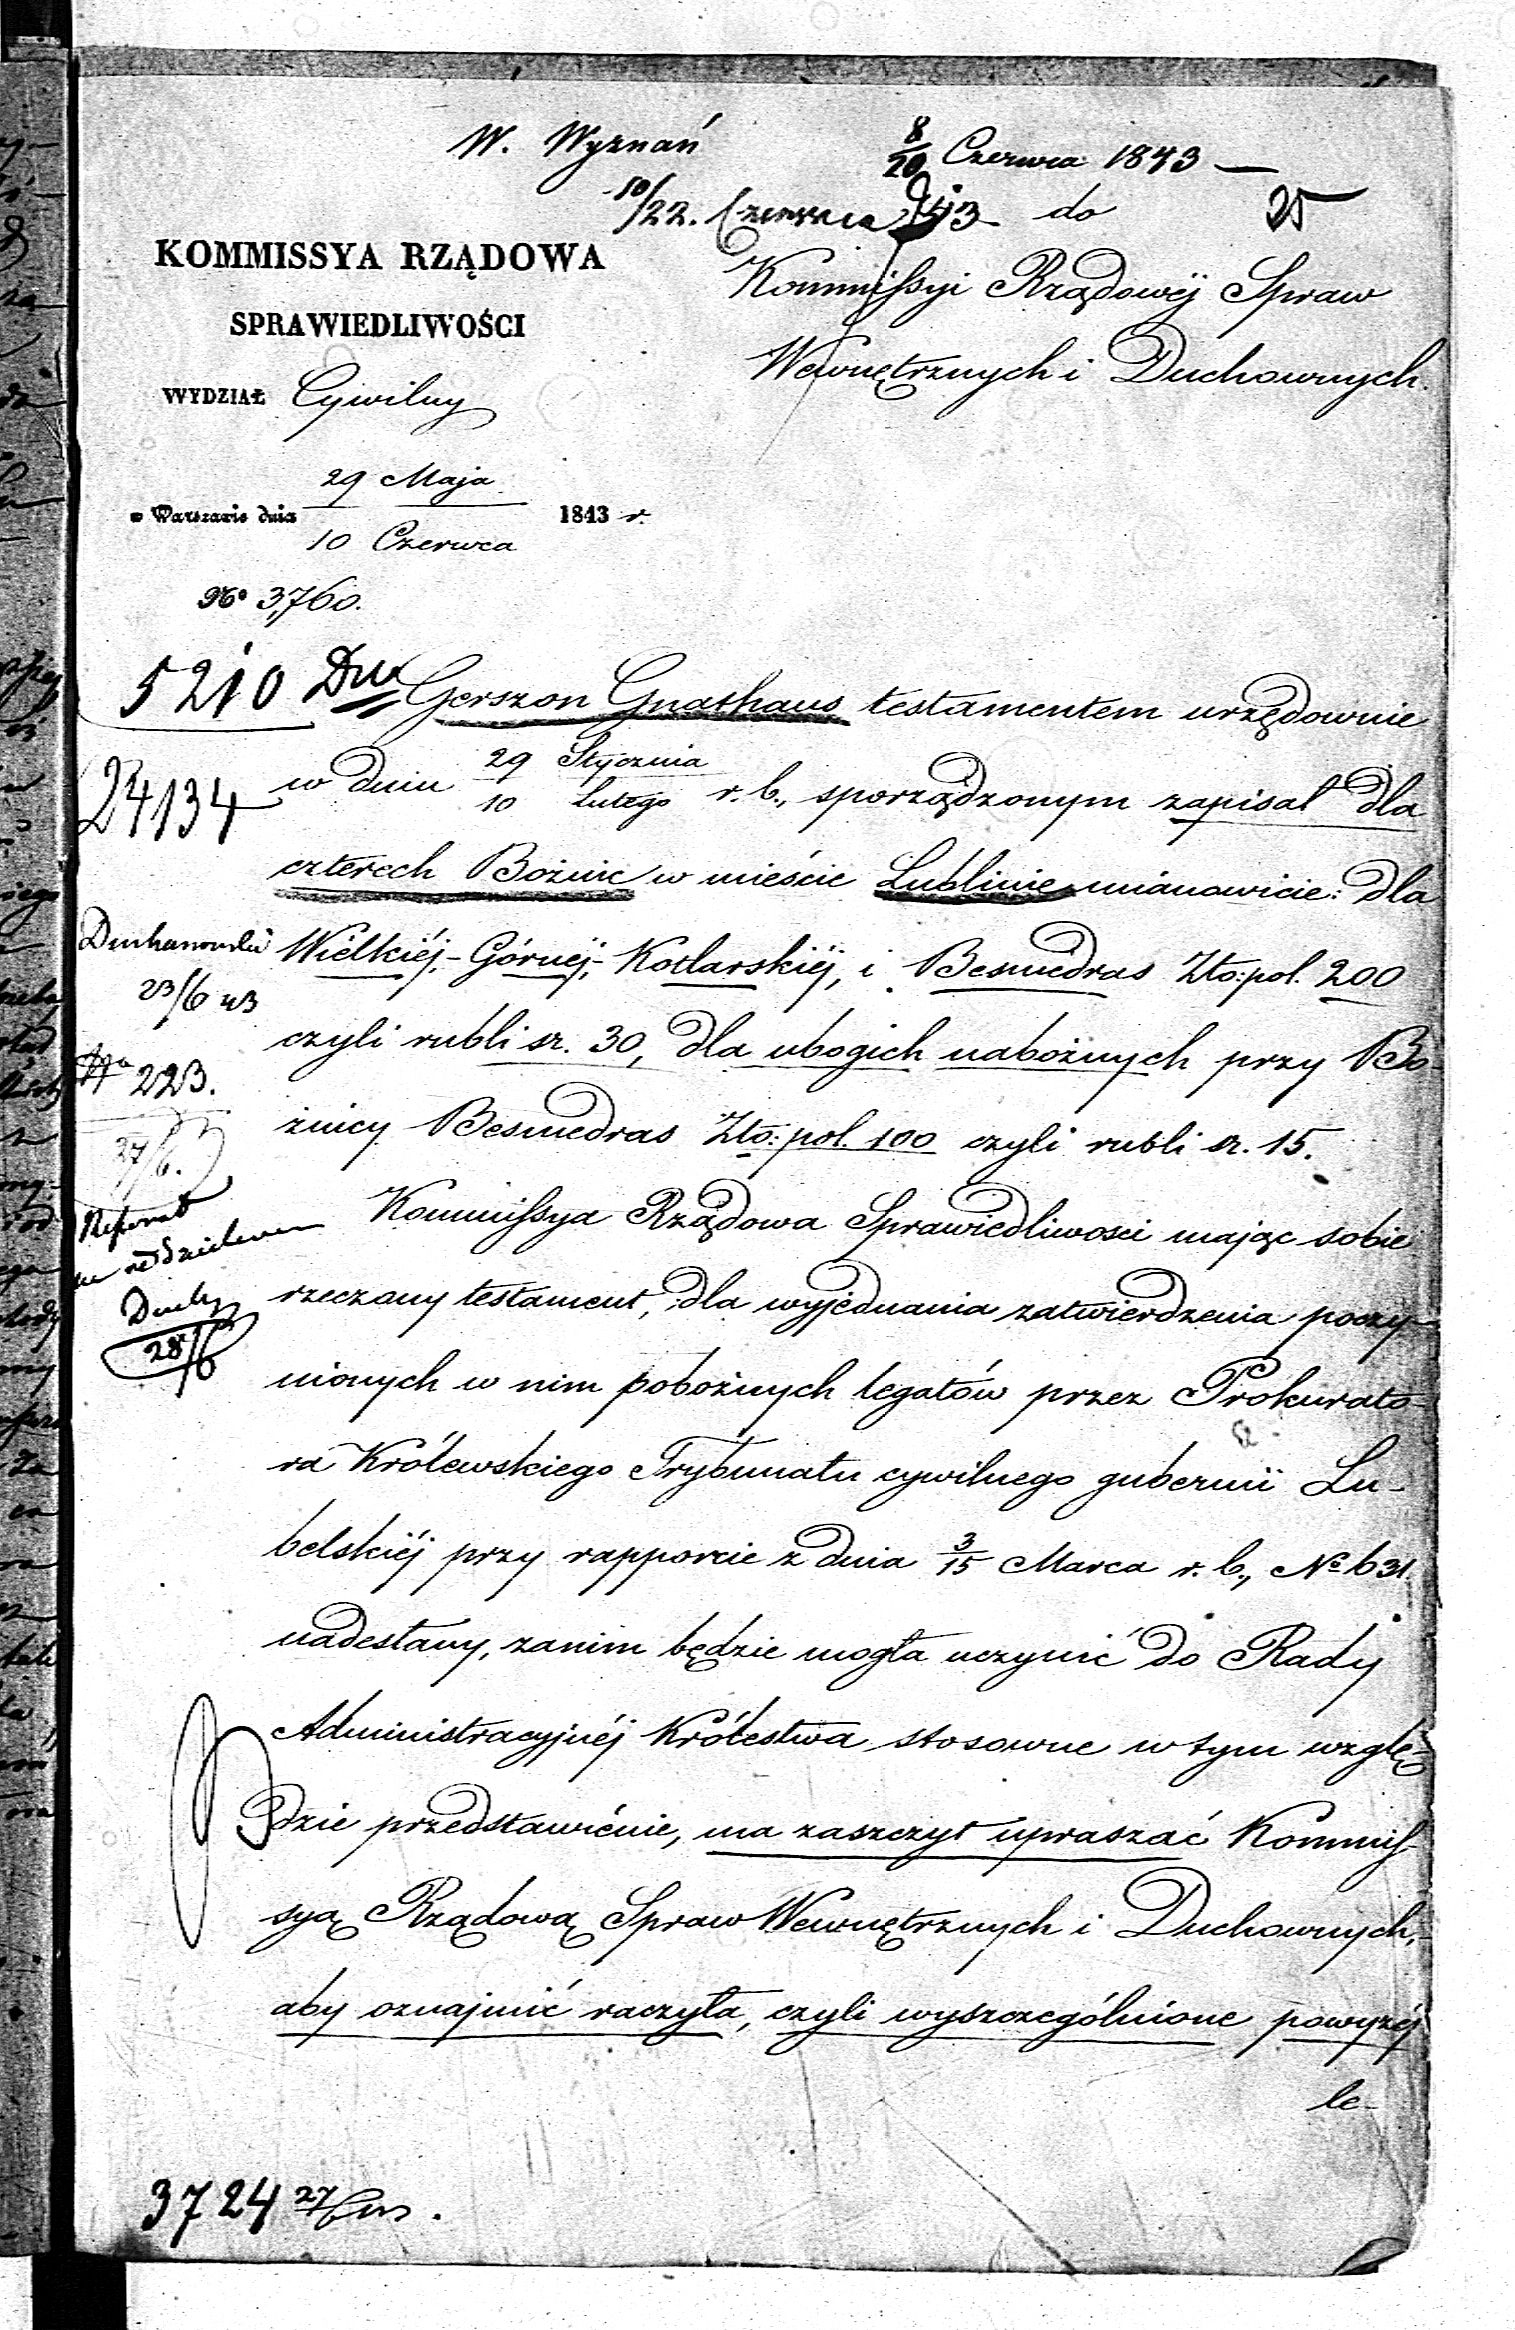 W. Wyznań
8/20 Czerwca 1843 —
10/22. Czerwca 43 do
25
KOMMISSYA RZĄDOWA
SPRAWIEDLIWOŚCI
WYDZIAŁ Cywilny
Kommissyi Rządowéj Spraw
Wewnętrznych i Duchownych.
29 Maja
w Warszawie dnia 1843 r.
10 Czerwca
No 3,760.
5210
24134
Gerszon Gnathaus testamentem urzędownie
w dniu 29 Stycznia / 10 Lutego r. b., sporządzonym zapisał dla
czterech Bożnic w mieście Lublinie mianowicie: dla
Wielkiéj,- Górnéj,- Kotlarskiéj, i Besmedras Zło: pol. 200
czyli rubli sr. 30, dla ubogich nabożnych przy Bo-
żnicy Besmedras Zło: pol. 100 czyli rubli sr. 15.
23/6 43
No 223.
27/6.
Referent
28/6
Kommissya Rządowa Sprawiedliwosci mając sobie
rzeczony testament, dla wyjednania zatwierdzenia poczy-
nionych w nim pobożnych legatów przez Prokurato-
ra Królewskiego Trybunału cywilnego gubernii Lu-
belskiéj przy rapporcie z dnia 3/15 Marca r. b., No 631.
nadesłany, zanim będzie mogła uczynić do Rady
Administracyjnéj Królestwa stosowne w tym wzglę-
dzie przedstawienie, ma zaszczyt upraszać Kommis-
syą Rządową Spraw Wewnętrznych i Duchownych,
aby oznajmić raczyła, czyli wyszczególnione powyżéj
le-
3724 27/6